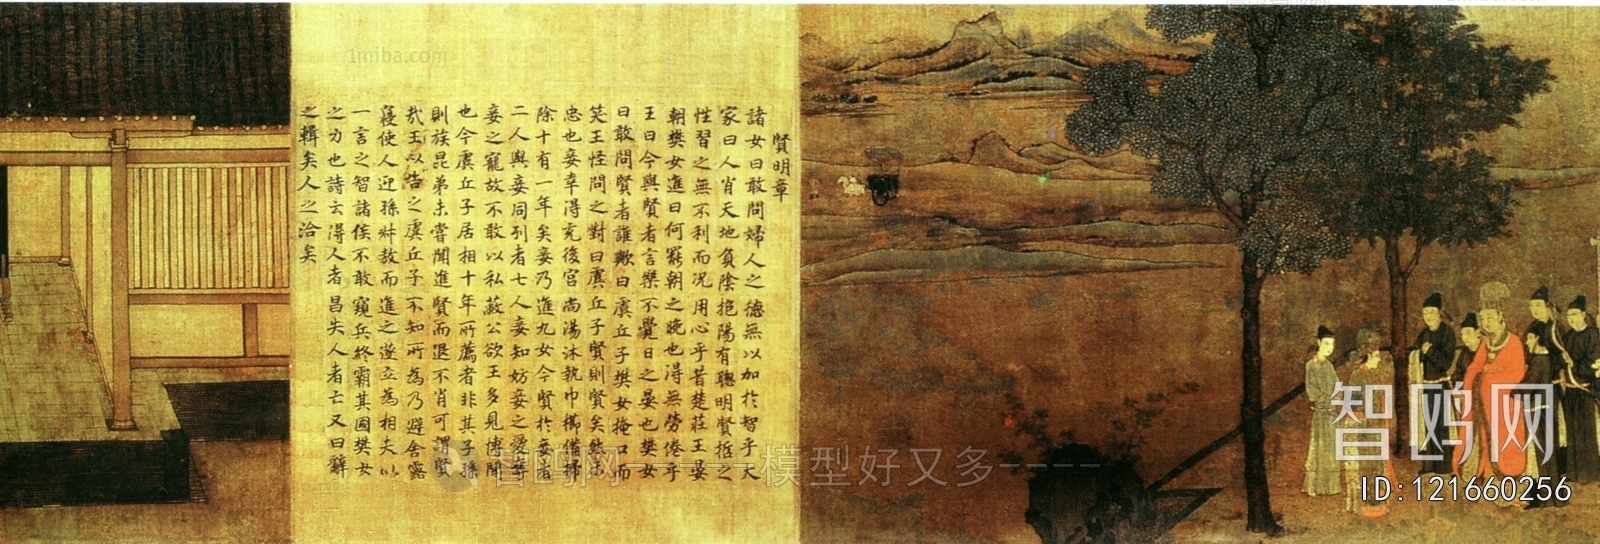 賢明章
諸女曰敢問婦人之德無以加於智乎大
家曰人肖天地負陰抱陽有聰明賢哲之
性習之無不利而況用心乎昔楚莊王晏
朝樊女進曰何罷朝之晚也得無勞倦乎
王曰今與賢者言樂不覺日之晏也樊女
曰敢問賢者誰歟曰虞丘子樊女掩口而
笑王怪問之對曰虞丘子賢則賢矣然未
忠也妾幸得充後宮尚湯沐執巾櫛備掃
除十有一年矣妾乃進九女今賢於妾者
二人與妾同列者七人妾知妨妾之愛奪
妾之寵故不敢以私蔽公欲王多見博聞
也今虞丘子居相十年所薦者非其子孫
則族昆弟未嘗聞進賢而退不肖可謂賢
哉王以告之虞丘子不知所為乃避舍露
寢使人迎孫叔敖而進之遂立為相夫以
一言之智諸侯不敢窺兵終霸其國樊女
之力也詩云得人者昌失人者亡又曰辭
之輯矣人之洽矣
智鸥网
1miba.com
智鸥网-----模型好又多----
智鸥网
ID:121660256